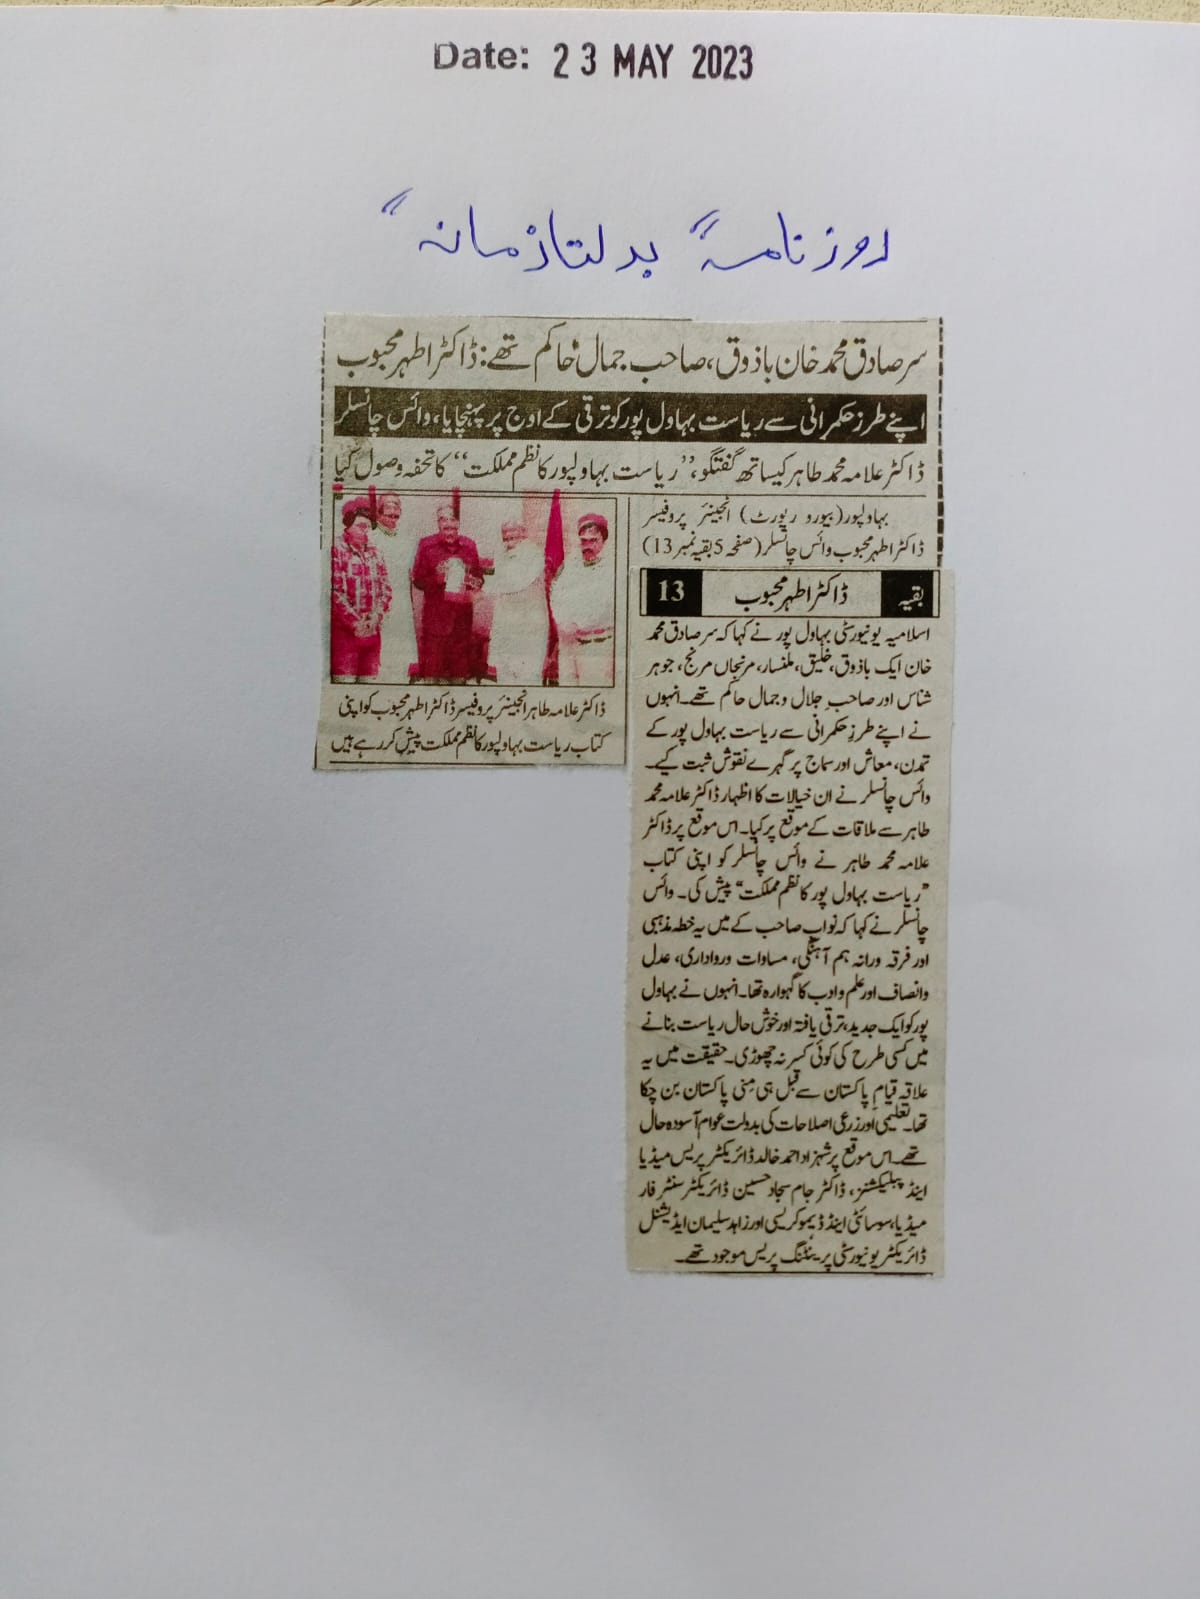 Date: 23 MAY 2023
روزنامہ "بدلتا زمانہ"
سر صادق محمد خان باذوق، صاحب جمال حاکم تھے: ڈاکٹر اطہر محبوب
اپنے طرز حکمرانی سے ریاست بہاول پور کو ترقی کے اوج پر پہنچایا، وائس چانسلر
ڈاکٹر علامہ محمد طاہر کیساتھ گفتگو، ”ریاست بہاولپور کا نظم مملکت“ کا تحفہ وصول کیا
بہاولپور (بیورو رپورٹ) انجینئر پروفیسر
ڈاکٹر اطہر محبوب وائس چانسلر (صفحہ 5 بقیہ نمبر 13)
ڈاکٹر علامہ طاہر انجینئر پروفیسر ڈاکٹر اطہر محبوب کو اپنی
کتاب ریاست بہاولپور کا نظم مملکت پیش کر رہے ہیں
بقیہ ڈاکٹر اطہر محبوب 13
اسلامیہ یونیورسٹی بہاول پور نے کہا کہ سر صادق محمد
خان ایک باذوق، خلیق، ملنسار، مرنجاں مرنج، جوہر
شناس اور صاحبِ جلال و جمال حاکم تھے۔ انہوں
نے اپنے طرزِ حکمرانی سے ریاست بہاول پور کے
تمدن، معاش اور سماج پر گہرے نقوش ثبت کیے۔
وائس چانسلر نے ان خیالات کا اظہار ڈاکٹر علامہ محمد
طاہر سے ملاقات کے موقع پر کیا۔ اس موقع پر ڈاکٹر
علامہ محمد طاہر نے وائس چانسلر کو اپنی کتاب
”ریاست بہاول پور کا نظم مملکت“ پیش کی۔ وائس
چانسلر نے کہا کہ نواب صاحب کے میں یہ خطہ مذہبی
اور فرقہ ورانہ ہم آہنگی، مساوات و رواداری، عدل
و انصاف اور علم و ادب کا گہوارہ تھا۔ انہوں نے بہاول
پور کو ایک جدید، ترقی یافتہ اور خوش حال ریاست بنانے
میں کسی طرح کی کوئی کسر نہ چھوڑی۔ حقیقت میں یہ
علاقہ قیامِ پاکستان سے قبل ہی مِنی پاکستان بن چکا
تھا۔ تعلیمی اور زرعی اصلاحات کی بدولت عوام آسودہ حال
تھے۔ اس موقع پر شہزاد احمد خالد ڈائریکٹر پریس میڈیا
اینڈ پبلیکشنز، ڈاکٹر جام سجاد حسین ڈائریکٹر سنٹر فار
میڈیا، سوسائٹی اینڈ ڈیموکریسی اور زاہد سلیمان ایڈیشنل
ڈائریکٹر یونیورسٹی پرینٹنگ پریس موجود تھے۔